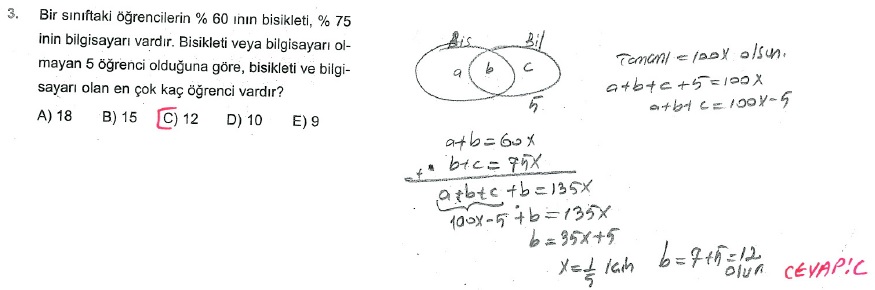 3. Bir sınıftaki öğrencilerin % 60 ının bisikleti, % 75
inin bilgisayarı vardır. Bisikleti veya bilgisayarı ol-
mayan 5 öğrenci olduğuna göre, bisikleti ve bilgi-
sayarı olan en çok kaç öğrenci vardır?
A) 18 B) 15 C) 12 D) 10 E) 9
Bis Bil
a b c
5
Tamamı = 100x olsun.
a+b+c+5=100x
a+b+c=100x-5
a+b=60x
+ b+c=75x
a+b+c+b=135x
100x-5+b=135x
b=35x+5
x=1/5 için b=7+5=12
olur
CEVAP:C